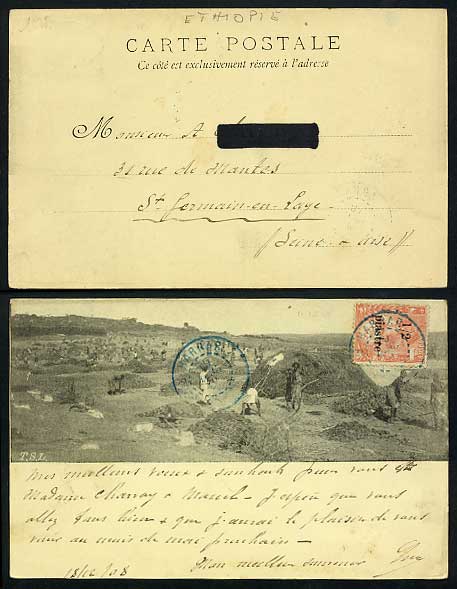 ETHIOPIE
CARTE POSTALE
Ce côté est exclusivement réservé à l'adresse
Monsieur A
31 rue de Mantes
St Germain-en-Laye
Seine & Oise
HARRAR
HARRAR
1/2
piastre
T.S.L.
mes meilleurs voeux & souhaits pour vous
Madame Charvay & Marcel – J'espère que vous
allez tous bien & que j'aurai le plaisir de vous
voir au mois de mai prochain –
18/12/08 Mon meilleur souvenir